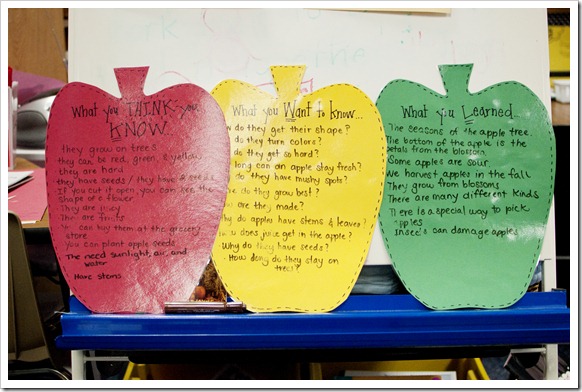 What you THINK you
KNOW
they grow on trees
they can be red, green, & yellow
they are hard
they have seeds / they have 4 seeds
If you cut it open, you can see the
shape of a flower
They are juicy
The are fruits
can buy them at the grocery
store
you can plant apple seeds
The need sunlight, air, and
water
Have stems
What you Want to know...
do they get their shape?
do they turn colors?
do they get so hard?
long can an apple stay fresh?
do they have mushy spots?
do they grow best?
are the made?
do apples have stems & leaves?
does juice get in the apple?
Why do they have seeds?
How long do they stay on
trees?
What you Learned...
The seasons of the apple tree.
The bottom of the apple is the
petals from the blossom.
Some apples are sour.
We harvest apples in the fall
They grow from blossoms
There are many different kinds
There is a special way to pick
apples
Insects can damage apples